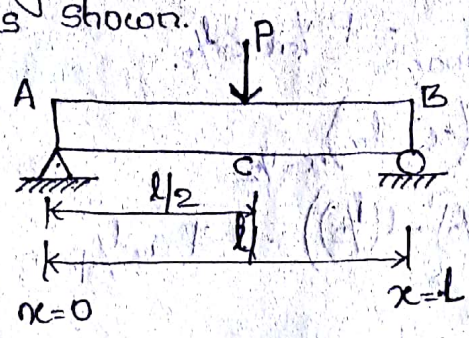 s shown.
P
A B
C
l/2
l
x=0 x=L